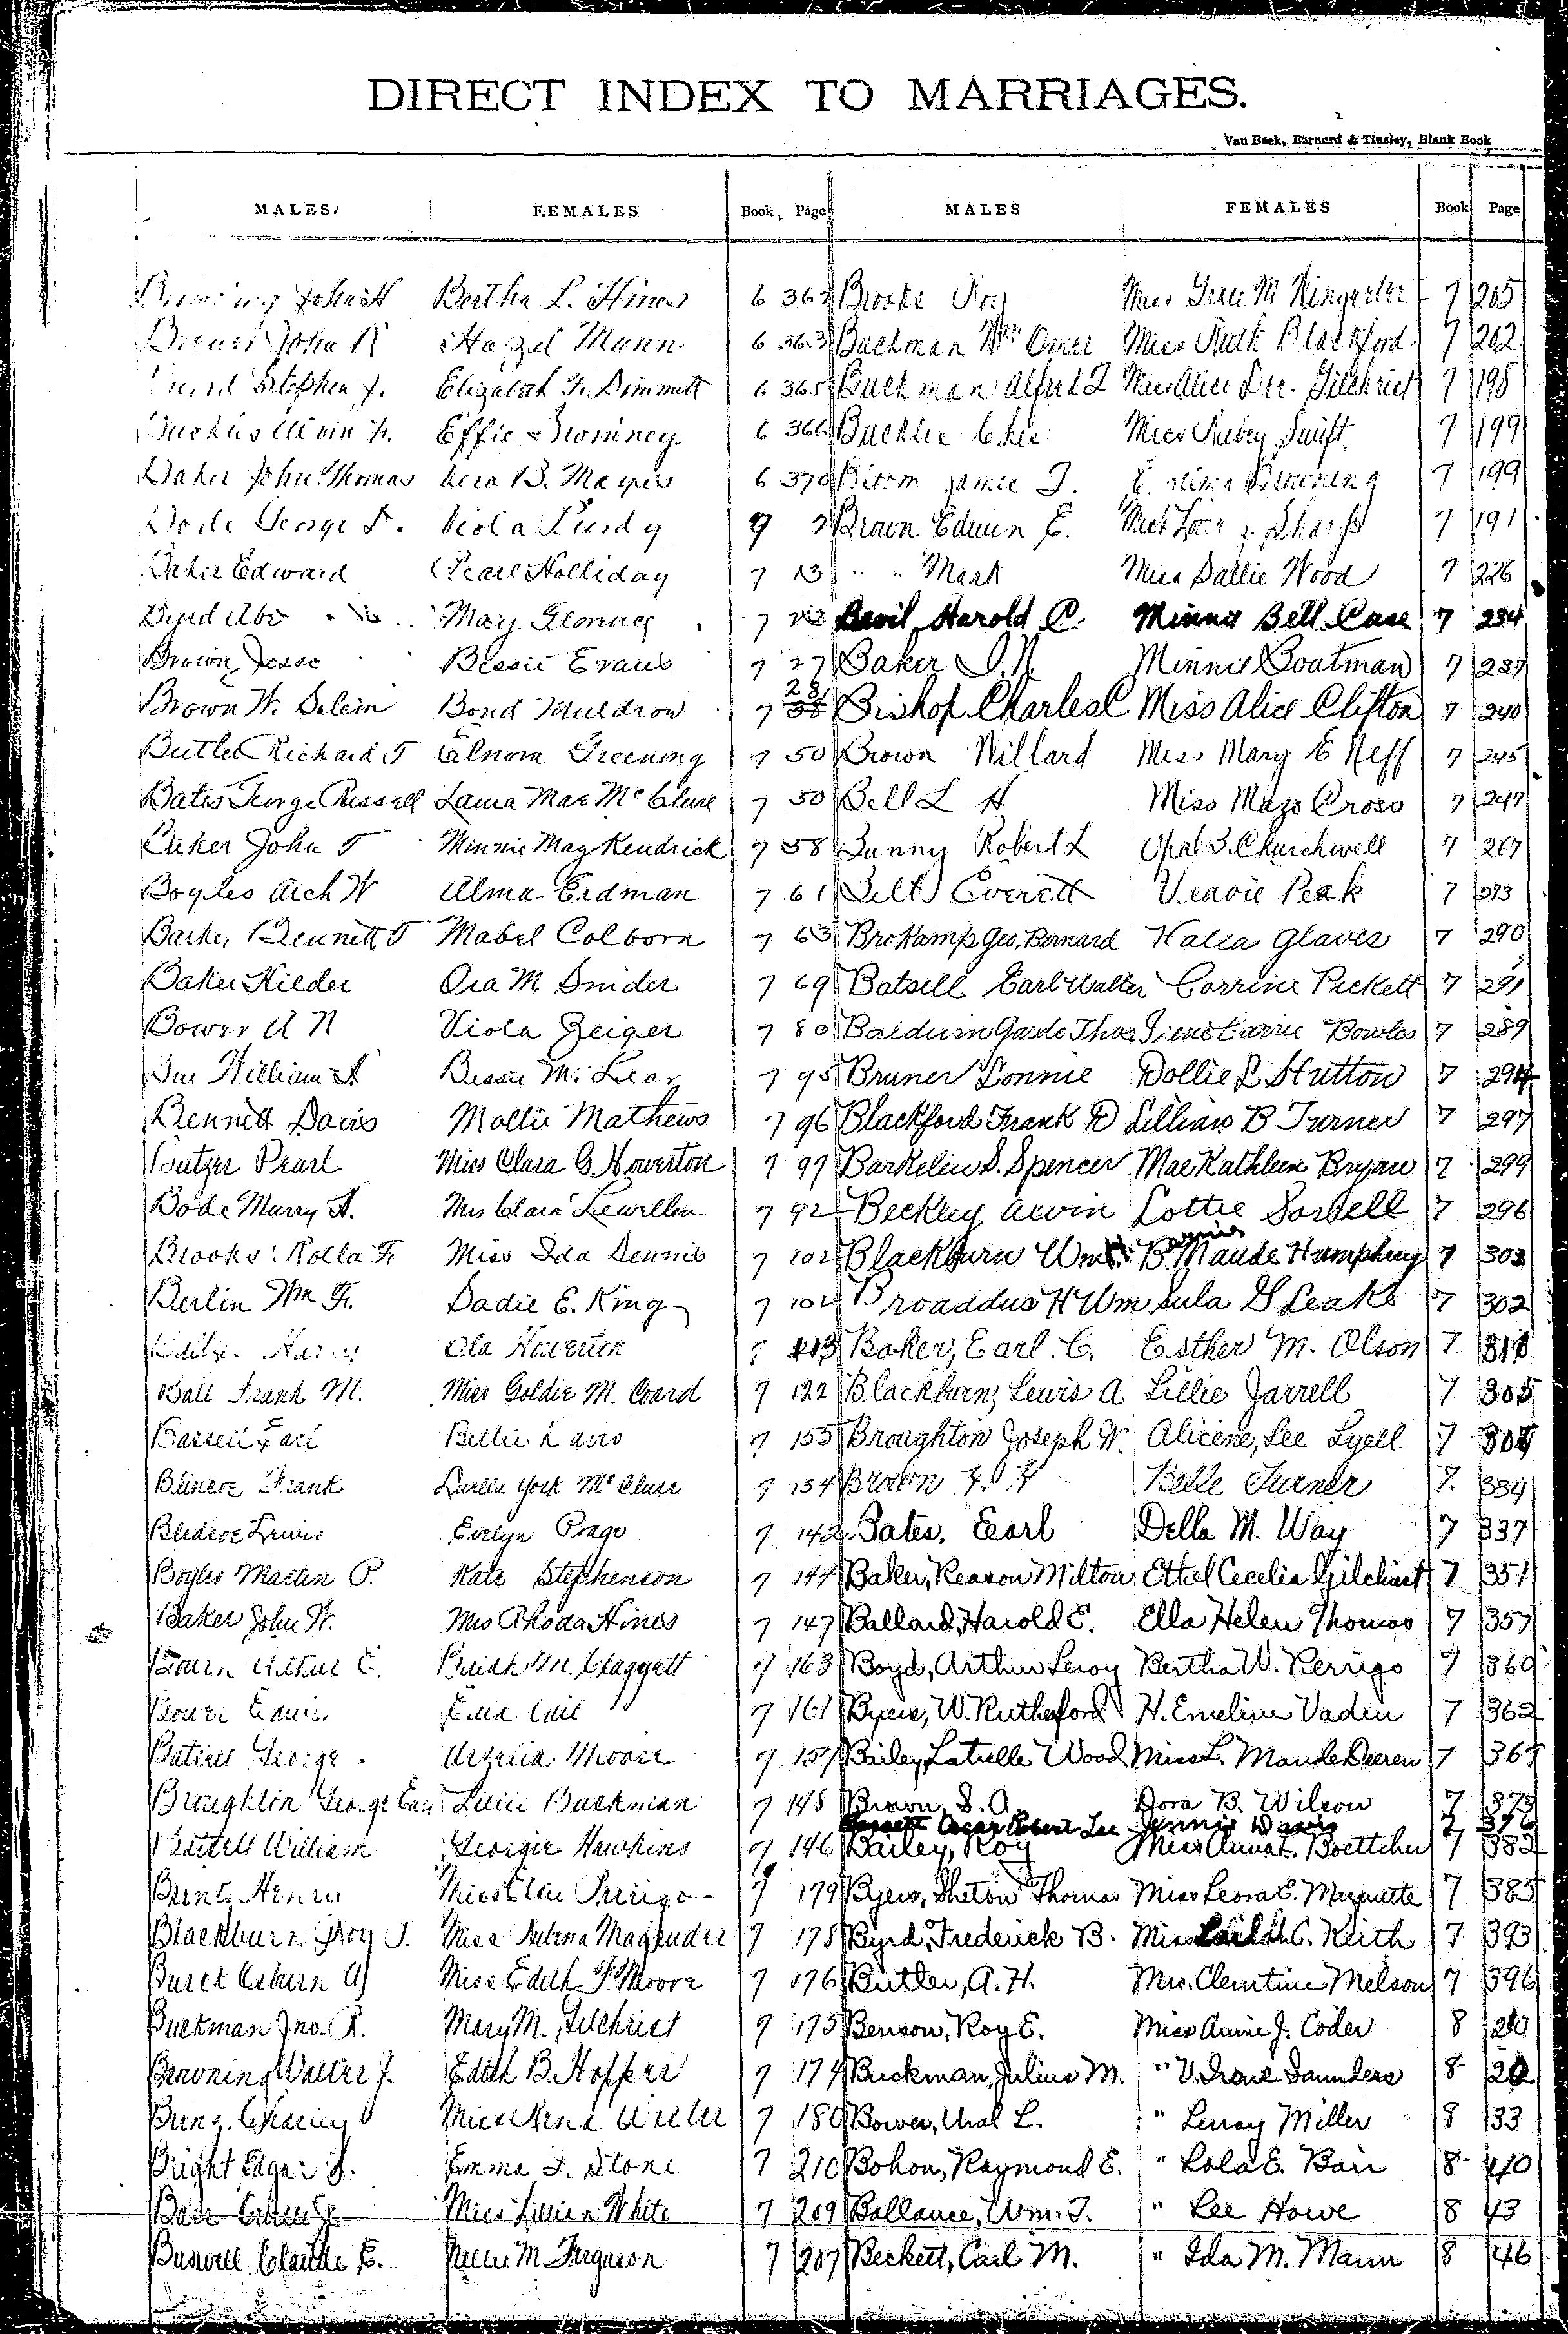 DIRECT INDEX TO MARRIAGES.
Van Beek, Barnard & Tinsley, Blank Book
MALES FEMALES Book Page MALES FEMALES Book Page
John H Bertha L. Hines 6 362 Brooke Roy Miss Grace M 7 205
John R Hazel Munn 6 363 Buckman Wm Omer Miss Ruth Blackford 7 202
Stephen J. Elizabeth F. Dimmitt 6 365 Buckman Alfred J Miss Alice Dee. Gilchrist 7 198
Buckles Alvin Fr. Effie 6 366 Miss Ruby Swift 7 199
Baker John Thomas B. Mayes 6 370 James T. Browning 7 199
George Viola Purdy 7 Brown Edwin E. Miss Sharp 7 191
Baker Edward Pearl Holliday 7 13 " " Mark Miss Sallie Wood 7 226
Byrd Abe Mary Glorney 7 Bevil Harold C. Minnie Bell Case 7 234
Brown Jesse Bessie Evans 7 27 Baker I. N. Minnie Boatman 7 237
Brown W. Selem Bond Muldrow 7 28 Bishop Charles C Miss Alice Clifton 7 240
Butler Richard T Elnora Greening 7 50 Brown Willard Miss Mary E Neff 7 245
Bates George Russell Laura Mae McClure 7 50 Bell L H Miss Maze Cross 7 247
John T Minnie May Kendrick 7 58 Bunny Robert L Opal B. Churchwell 7 267
Boyles Arch W Alma Erdman 7 61 Belt Everett Veavie Peak 7 273
Barker Bennett T Mabel Colborn 7 63 Brokamp Geo. Bernard Halea Glaves 7 290
Baker Hilder Ora M Snider 7 69 Batsell Earl Walter Corrine Pickett 7 291
Bower A N Viola Zeiger 7 80 Baldwin Gaide Thos Irene Carrie Bowles 7 289
Bue William A Bessie McLear 7 95 Bruner Lonnie Dollie L Hutton 7 294
Bennett Davis Mollie Mathews 7 96 Blackford Frank D Lillian B Turner 7 297
Butzer Pearl Miss Clara G. Howerton 7 97 Barkelew S. Spencer Mae Kathleen Bryan 7 299
Bode Murry A. Mrs Clara Lewellen 7 92 Beckley Alvin Lottie Sorbell 7 296
Brooks Rolla Fr Miss Ida Dennis 7 102 Blackburn Wm H. B. Maude Humphrey 7 303
Berlin Wm Fr. Sadie E. King 7 102 Broaddus H Wm Lula G Leake 7 302
Ola Howerton 7 113 Baker, Earl. C. Esther M. Olson 7 311
Ball Frank M. Miss Goldie M. Coard 7 122 Blackburn, Lewis A Lillie Jarrell 7 305
Earl Bettie Davis 7 133 Broughton Joseph W. Alicene, Lee Lyell 7 304
Blincoe Frank Luella York McClure 7 134 Brown F. F Belle Turner 7 334
Bledsoe Lewis Evelyn Prage 7 142 Bates, Earl Della M. Way 7 337
Boyles Martin P. Kate Stephenson 7 144 Baker, Reason Milton Ethel Cecelia Gilchrist 7 351
Baker John W. Mrs Rhoda Hines 7 147 Ballard, Harold E. Ella Helen Thomas 7 357
Arthur E. M. Claggett 7 163 Boyd, Arthur Leroy Bertha W. Perrigo 7 360
Bower Edwin 7 161 Byers, W. Rutherford H. Emeline Vaden 7 362
George Moore 7 157 Bailey Latrelle Wood Miss L. Maude Deeren 7 367
Broughton George Lucie Buckman 7 148 Brown, S. A. Dora B. Wilson 7 373
Oscar Robert Lee Jennie Davis 7 376
William Georgie Hawkins 7 146 Bailey, Roy Miss Anna L. Boettcher 7 382
Henry Miss Perrigo 7 179 Byers, Shelton Thomas Miss Leora E. Marquette 7 385
Blackburn Roy J. Miss Magruder 7 178 Byrd, Frederick B. Miss C. Keith 7 393
Burch A Miss Edith F. Moore 7 176 Butler, A. H. Mrs. Clemtine Melson 7 396
Buckman Jno. R. Mary M. Gilchrist 7 175 Benson, Roy E. Miss Annie J. Coder 8 20
Browning Walter J. Edith B. Hopper 7 174 Buckman, Julius M. " V. Irene Saunders 8 20
Miss 7 180 Bower, Ural L. " Leroy Miller 8 33
Bright Edgar Emma F. Stone 7 210 Bohon, Raymond E. " Lola E. Bair 8 40
Miss Lillian White 7 209 Ballance, Wm. T. " Lee Howe 8 43
Buswell Claude E. Nellie M. Ferguson 7 207 Beckett, Carl M. " Ida M. Mann 8 46